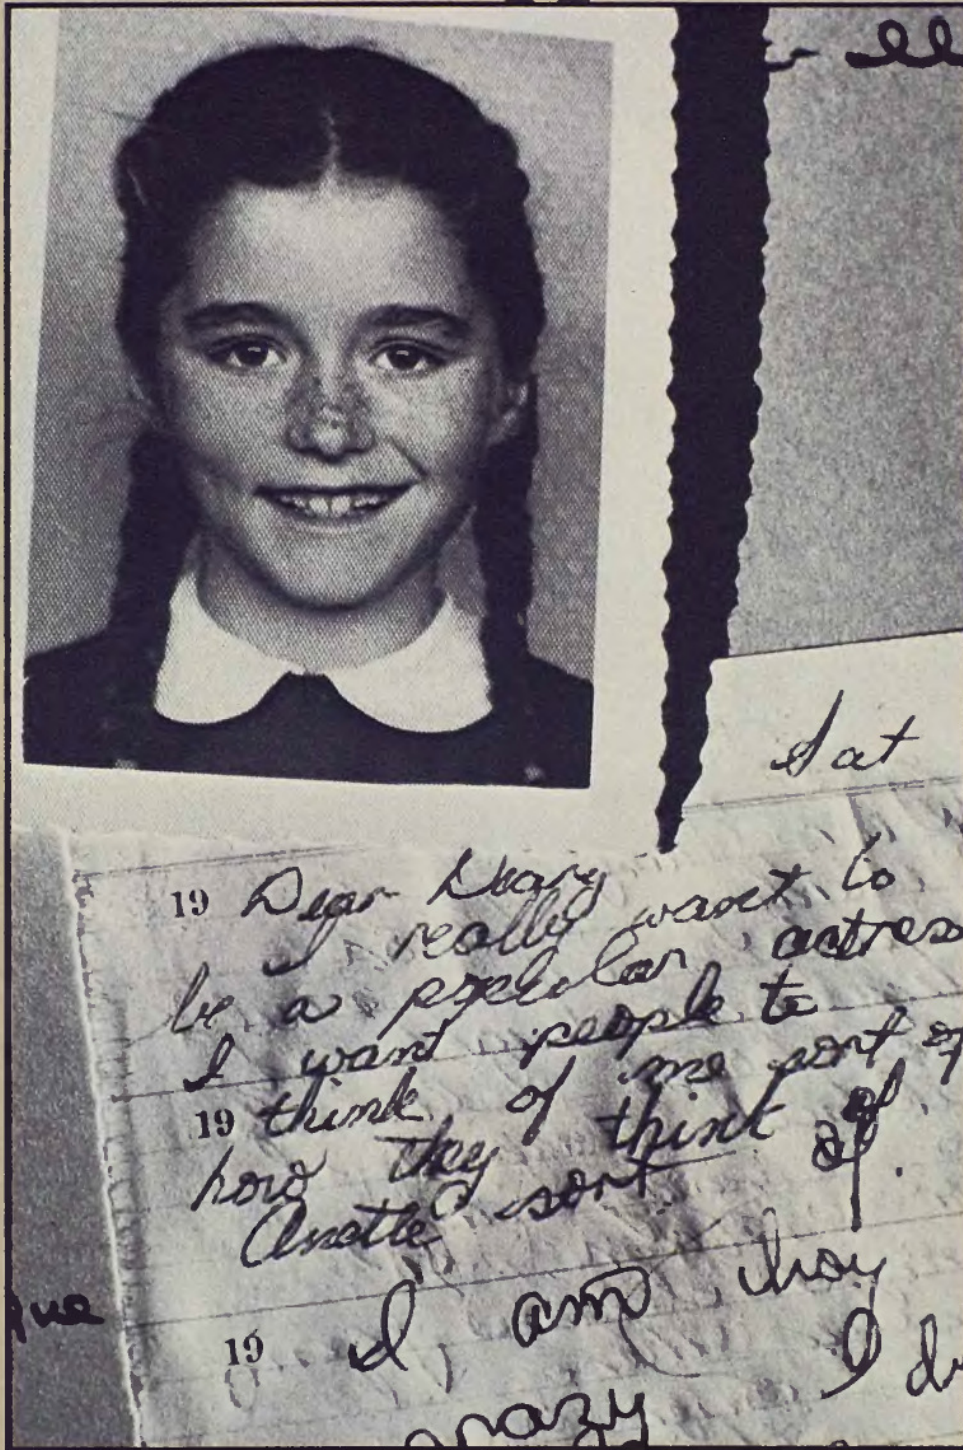 Sat
19 Dear Diary
I really want to
be a popular actres
I want people to
19 think of me sort of
how they think of
sort of.
19 I am
I